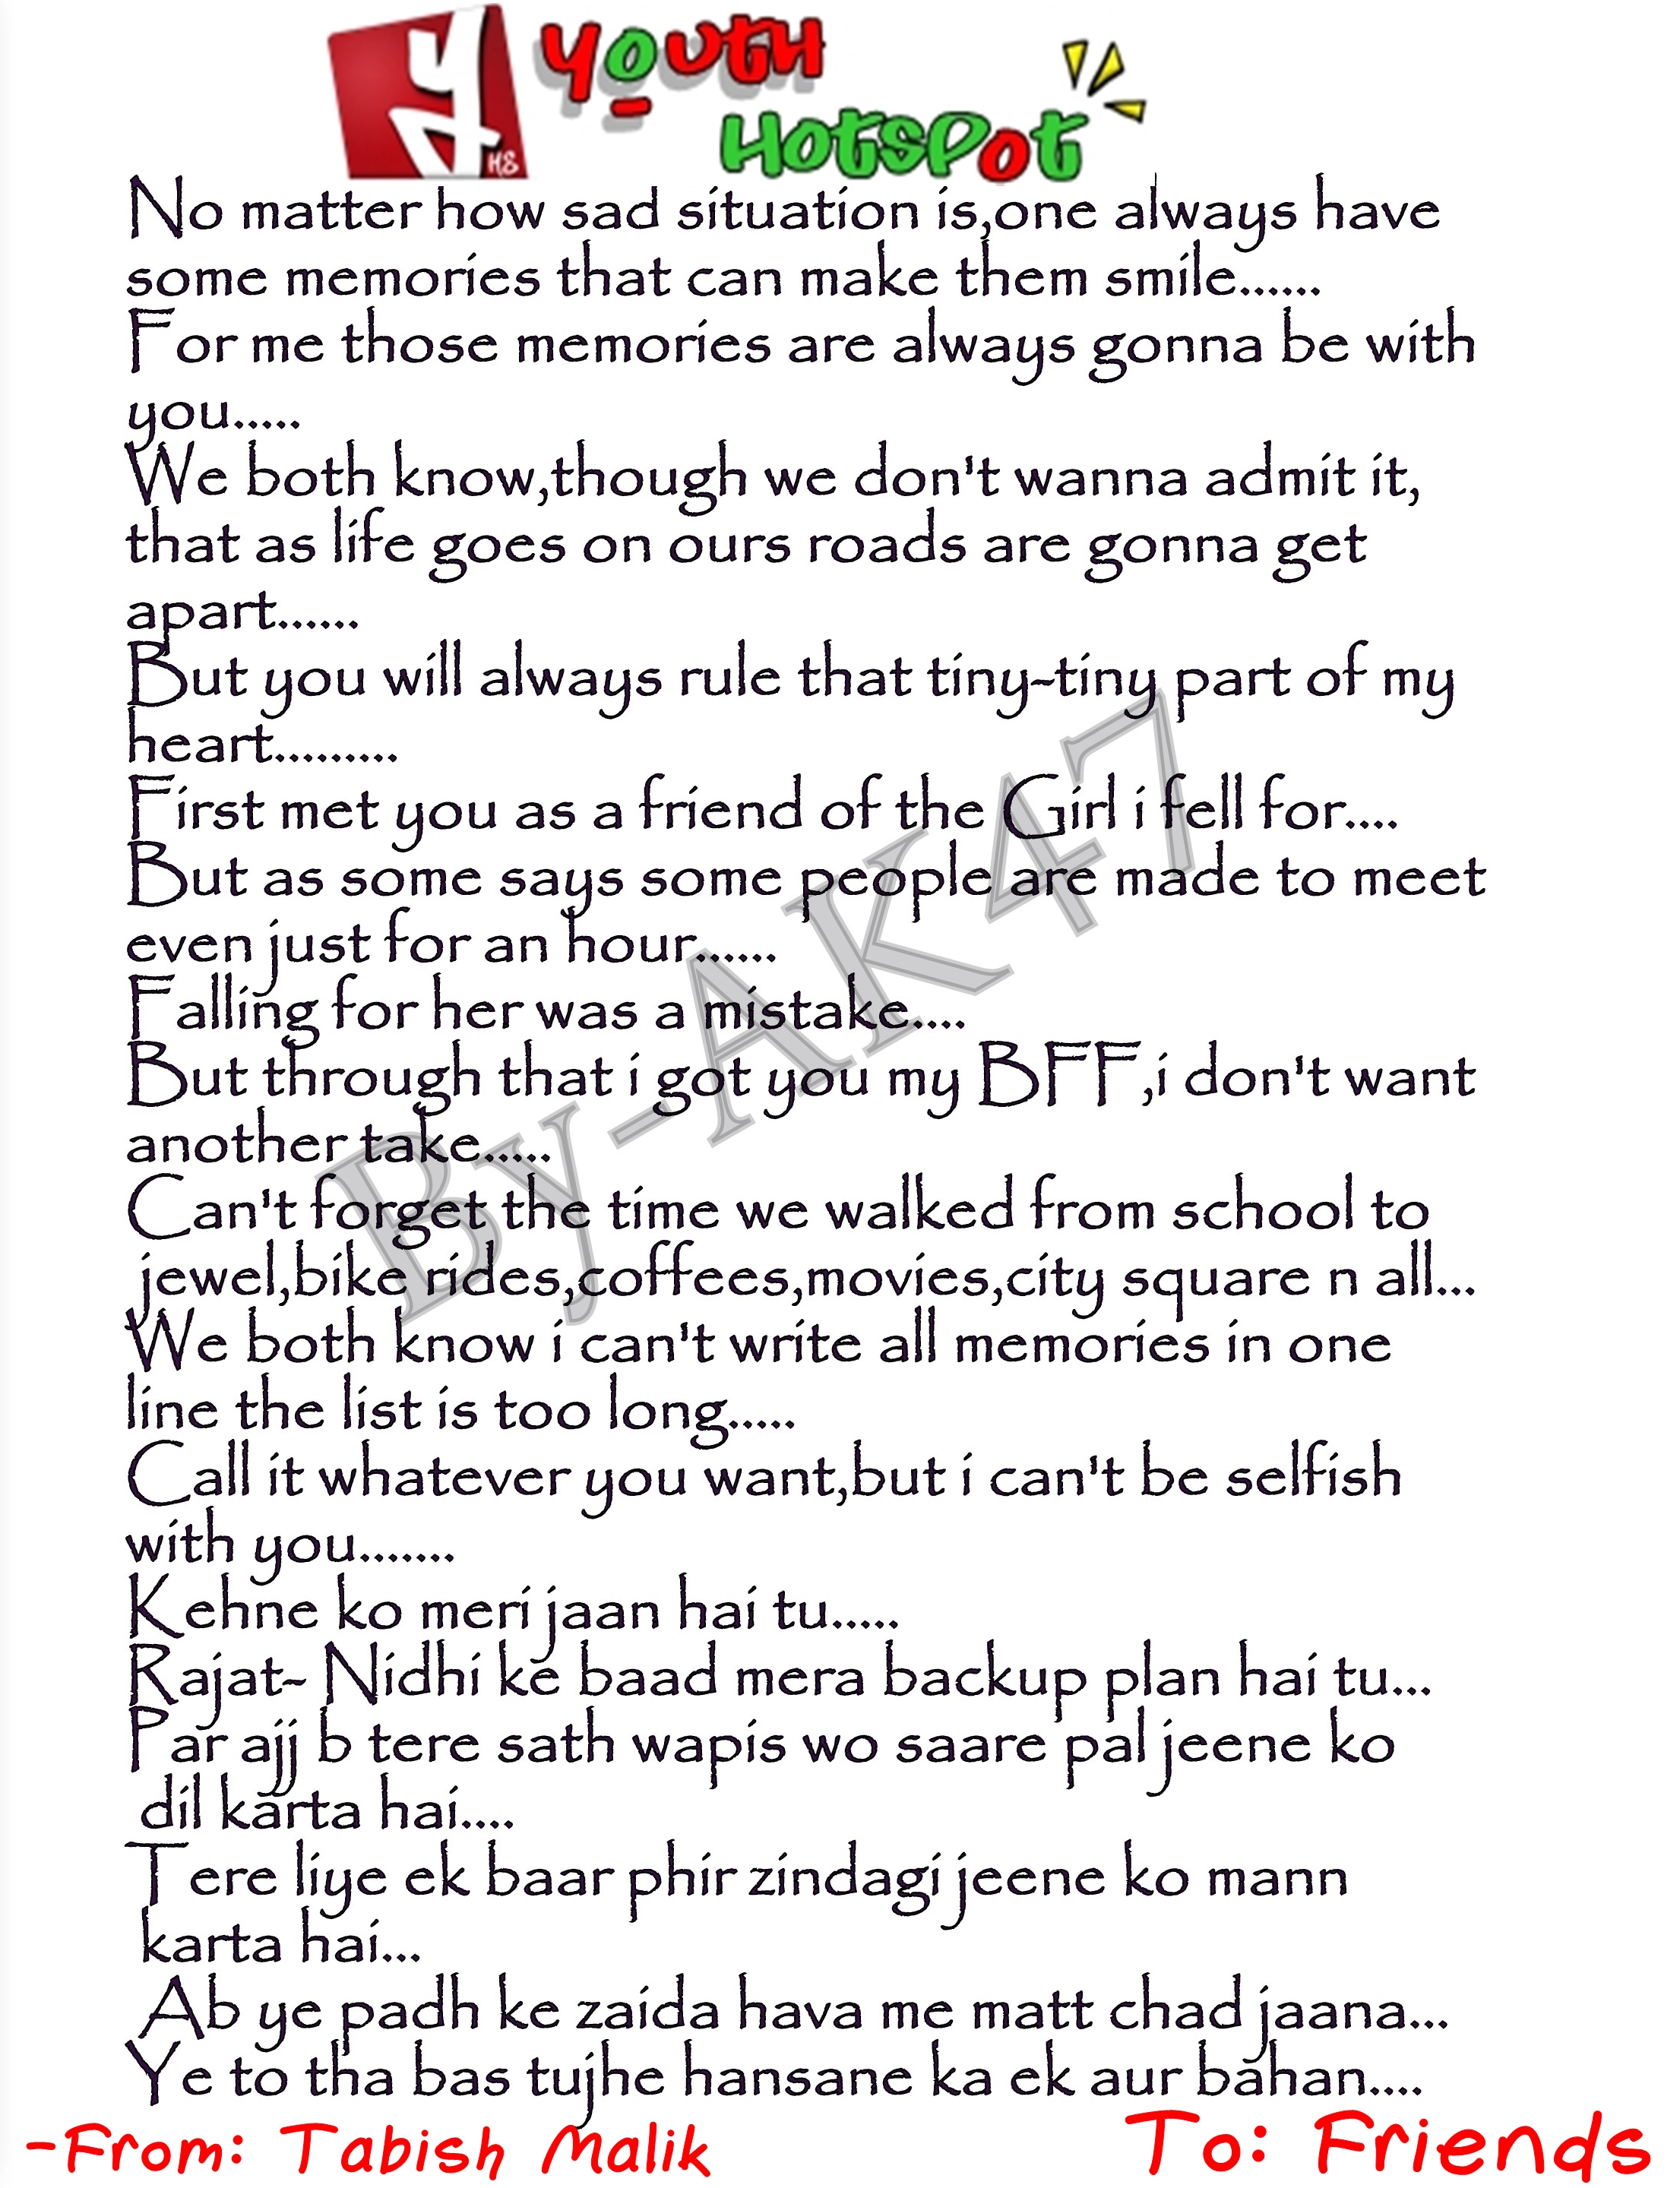 Y HS YOUTH
HOTSPOT
No matter how sad situation is,one always have
some memories that can make them smile......
For me those memories are always gonna be with
you.....
We both know,though we don't wanna admit it,
that as life goes on ours roads are gonna get
apart......
But you will always rule that tiny-tiny part of my
heart.........
First met you as a friend of the Girl i fell for....
But as some says some people are made to meet
even just for an hour......
Falling for her was a mistake....
But through that i got you my BFF,i don't want
another take.....
Can't forget the time we walked from school to
jewel,bike rides,coffees,movies,city square n all...
We both know i can't write all memories in one
line the list is too long.....
Call it whatever you want,but i can't be selfish
with you.......
Kehne ko meri jaan hai tu.....
Rajat- Nidhi ke baad mera backup plan hai tu...
Par ajj b tere sath wapis wo saare pal jeene ko
dil karta hai....
Tere liye ek baar phir zindagi jeene ko mann
karta hai...
Ab ye padh ke zaida hava me matt chad jaana...
Ye to tha bas tujhe hansane ka ek aur bahan....
By-AK47
-From: Tabish Malik
To: Friends